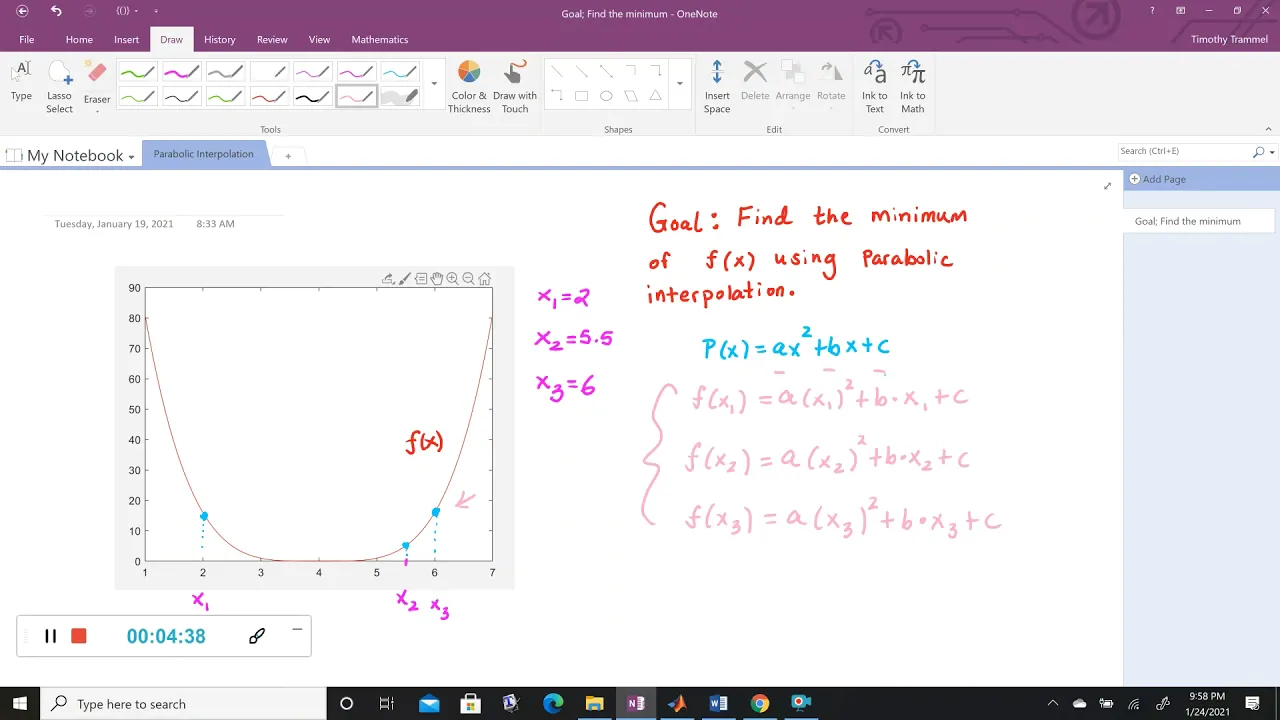 Goal; Find the minimum - OneNote
Timothy Trammel
File Home Insert Draw History Review View Mathematics
Type
Lasso Select
Eraser
Color & Thickness
Draw with Touch
Insert Space
Delete
Arrange
Rotate
Ink to Text
Ink to Math
Tools Shapes Edit Convert
My Notebook
Parabolic Interpolation
Search (Ctrl+E)
Add Page
Goal; Find the minimum
Tuesday, January 19, 2021 8:33 AM
Goal: Find the minimum
of f(x) using Parabolic
interpolation.
x₁=2
x₂=5.5
x₃=6
P(x)=ax²+bx+c
f(x₁)=a(x₁)²+b·x₁+c
f(x₂)=a(x₂)²+b·x₂+c
f(x₃)=a(x₃)²+b·x₃+c
90
80
70
60
50
40
30
20
10
0
f(x)
1 2 3 4 5 6 7
x₁ x₂ x₃
00:04:38
Type here to search
9:58 PM
1/24/2021